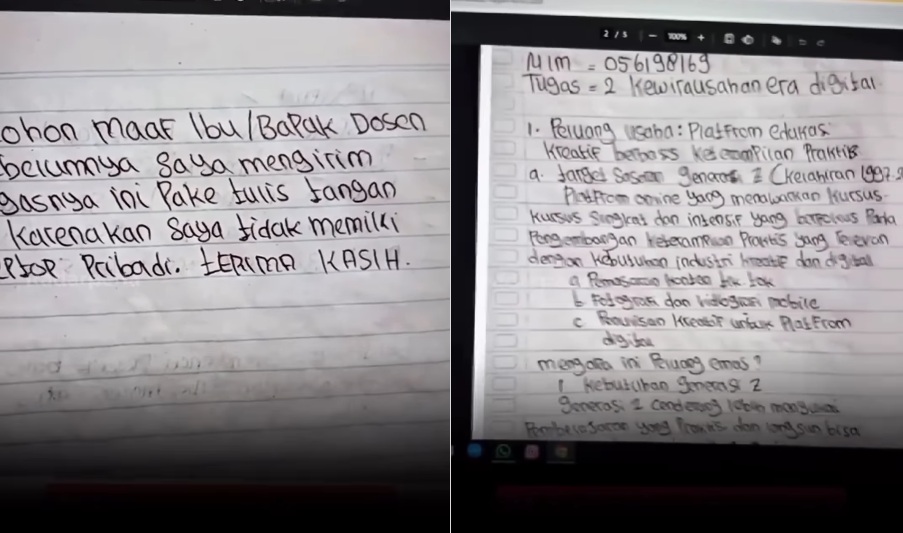 ohon maaf Ibu/Bapak Dosen
belumnya saya mengirim
gasnya ini Pake tulis tangan
karenakan saya tidak memiliki
Ptop Pribadi. tERIMA KASIH.
2 / 5 − 100% +
NIM = 056198169
Tugas = 2 Kewirausahan era digital
1. Peluang usaha: Platfrom edukasi
kreatif berbasis keterampilan Praktis
a. target Sasaran generasi Z (kelahiran 1997-2
Platfrom online yang menawarkan kursus-
kursus singkat dan intensif yang berfokus Pada
Pengembangan keterampilan Praktis yang relevan
dengan kebutuhan industri kreatif dan digital
a Pemasaran konten tik tok
b fotografi dan vidiografi mobile
c Penulisan kreatif untuk Platfrom
digital
mengapa ini Peluang emas?
1. kebutuhan generasi Z
generasi Z cenderung lebih menyukai
Pembelajaran yang Praktis dan langsun bisa